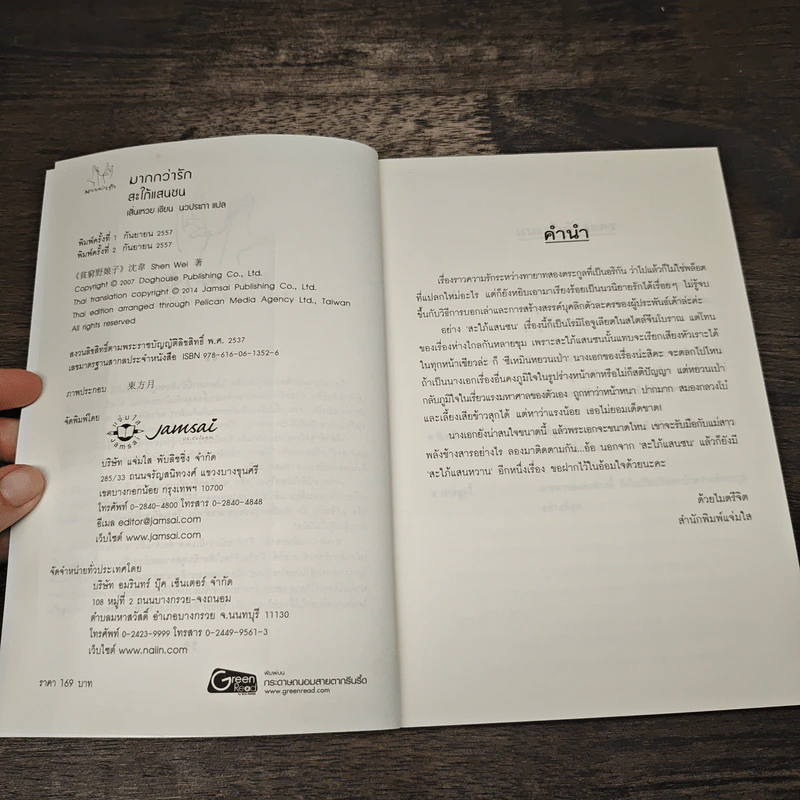 มากกว่ารัก
มากกว่ารัก
สะใภ้แสนซน
เสิ่นเหวย เขียน นวประภา แปล
พิมพ์ครั้งที่ 1 กันยายน 2557
พิมพ์ครั้งที่ 2 กันยายน 2557
《貧窮野娘子》沈韋 Shen Wei 著
Copyright © 2007 Doghouse Publishing Co., Ltd.
Thai translation copyright © 2014 Jamsai Publishing Co., Ltd.
Thai edition arranged through Pelican Media Agency Ltd., Taiwan
All rights reserved
สงวนลิขสิทธิ์ตามพระราชบัญญัติลิขสิทธิ์ พ.ศ. 2537
เลขมาตรฐานสากลประจำหนังสือ ISBN 978-616-06-1352-6
ภาพประกอบ 東方月
จัดพิมพ์โดย
แจ่มใส
jamsai
jamsai
บริษัท แจ่มใส พับลิชชิ่ง จำกัด
285/33 ถนนจรัญสนิทวงศ์ แขวงบางขุนศรี
เขตบางกอกน้อย กรุงเทพฯ 10700
โทรศัพท์ 0-2840-4800 โทรสาร 0-2840-4848
อีเมล editor@jamsai.com
เว็บไซต์ www.jamsai.com
จัดจำหน่ายทั่วประเทศโดย
บริษัท อมรินทร์ บุ๊ค เซ็นเตอร์ จำกัด
108 หมู่ที่ 2 ถนนบางกรวย-จงถนอม
ตำบลมหาสวัสดิ์ อำเภอบางกรวย จ.นนทบุรี 11130
โทรศัพท์ 0-2423-9999 โทรสาร 0-2449-9561-3
เว็บไซต์ www.naiin.com
ราคา 169 บาท
Green
Read
พิมพ์บน
กระดาษถนอมสายตากรีนรี้ด
www.greenread.com
คำนำ
เรื่องราวความรักระหว่างทายาทสองตระกูลที่เป็นอริกัน ว่าไปแล้วก็ไม่ใช่พล็อต
ที่แปลกใหม่อะไร แต่ก็ยังหยิบเอามาเรียงร้อยเป็นนวนิยายรักได้เรื่อยๆ ไม่รู้จบ
ขึ้นกับวิธีการบอกเล่าและการสร้างสรรค์บุคลิกตัวละครของผู้ประพันธ์เค้าล่ะค่ะ
อย่าง ‘สะใภ้แสนซน’ เรื่องนี้ก็เป็นโรมิโอจูเลียตในสไตล์จีนโบราณ แต่โทน
ของเรื่องห่างไกลกันหลายขุม เพราะสะใภ้แสนซนนั้นแทบจะเรียกเสียงหัวเราะได้
ในทุกหน้าเชียวล่ะ ก็ ‘ซีเหมินหยวนเป่า’ นางเอกของเรื่องน่ะสิคะ จะตลกไปไหน
ถ้าเป็นนางเอกเรื่องอื่นคงภูมิใจในรูปร่างหน้าตาหรือไม่ก็สติปัญญา แต่หยวนเป่า
กลับภูมิใจในเรี่ยวแรงมหาศาลของตัวเอง ถูกหาว่าหน้าหนา ปากมาก สมองกลวงโบ๋
และเลี้ยงเสียข้าวสุกได้ แต่หาว่าแรงน้อย เธอไม่ยอมเด็ดขาด!
นางเอกยังน่าสนใจขนาดนี้ แล้วพระเอกจะขนาดไหน เขาจะรับมือกับแม่สาว
พลังช้างสารอย่างไร ลองมาติดตามกัน...อ้อ นอกจาก ‘สะใภ้แสนซน’ แล้วก็ยังมี
‘สะใภ้แสนหวาน’ อีกหนึ่งเรื่อง ขอฝากไว้ในอ้อมใจด้วยนะคะ
ด้วยไมตรีจิต
สำนักพิมพ์แจ่มใส